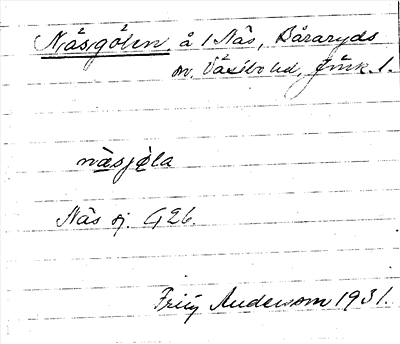 Näsgölen, å 1 Näs, Båraryds
sn, Västbo hd, Jönk. l.
näsjöla
Näs sj. G26.
Frity Anderson 1931.